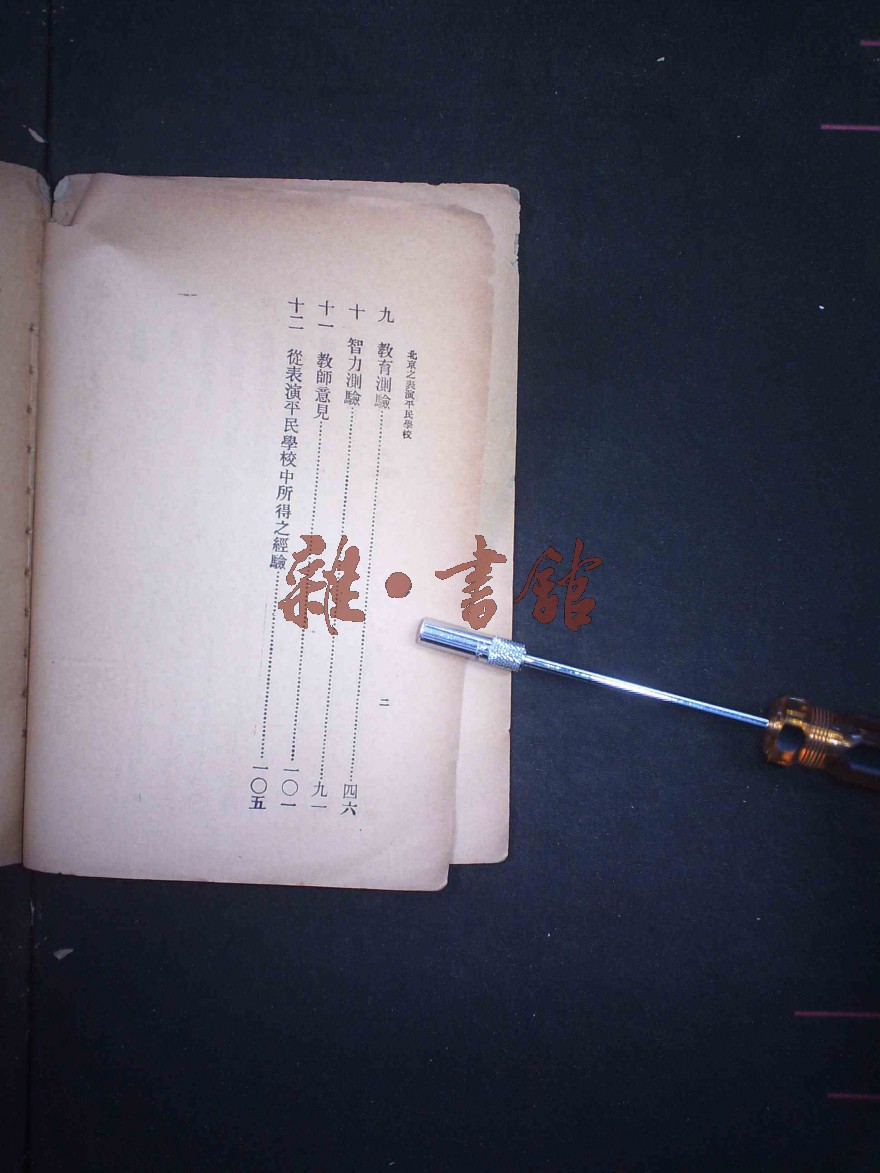 北京之表演平民學校
二
九 教育測驗……四六
十 智力測驗……九一
十一 教師意見……一〇一
十二 從表演平民學校中所得之經驗……一〇五
雜·書館